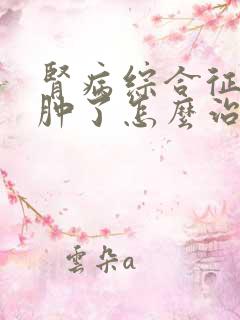 腎病綜合征
肿了怎麼治
雲朵a